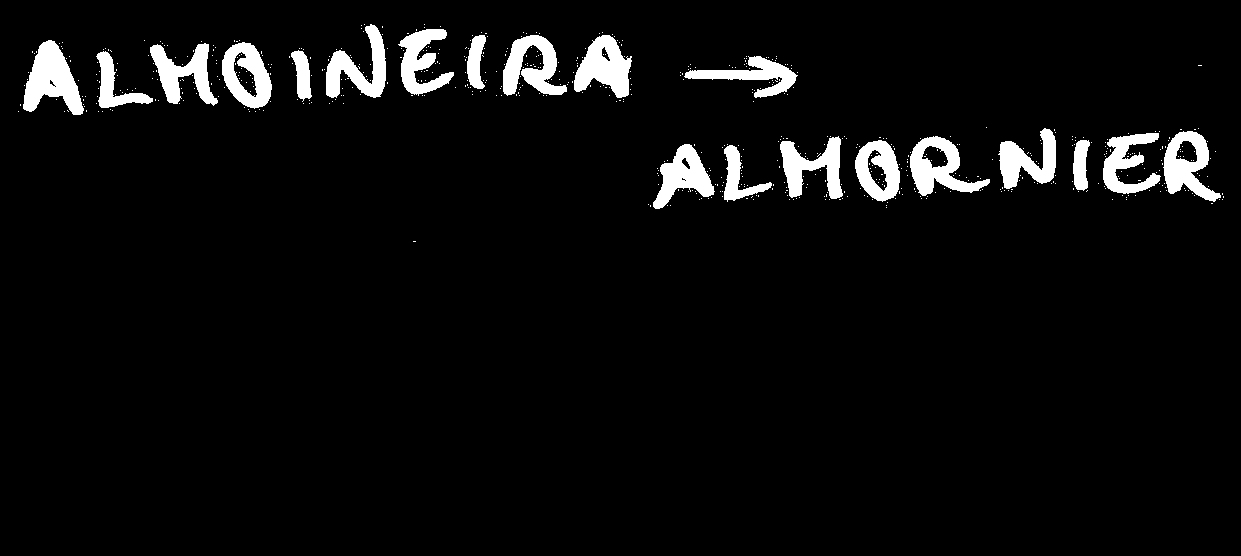 ALMOINEIRA →
ALMORNIER